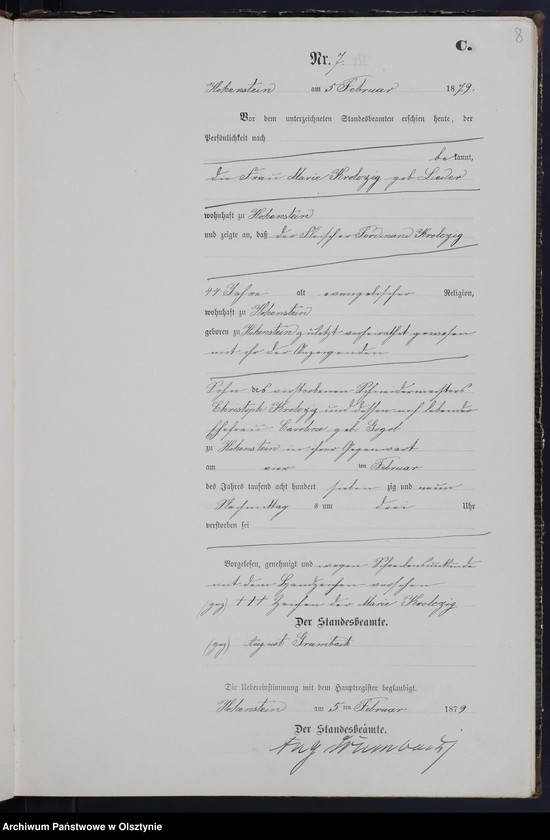 8
C.
Nr. 7.
Hohenstein am 5 Februar 1879.
Vor dem unterzeichneten Standesbeamten erschien heute, der
Persönlichkeit nach
bekannt,
die Frau Marie Krolczig geb Lieder
wohnhaft zu Hohenstein
und zeigte an, daß der Fleischer Ferdinand Krolczig
44 Jahre alt evangelischer Religion,
wohnhaft zu Hohenstein
geboren zu Hohenstein zuletzt verheirathet gewesen
mit ihr der Anzeigenden
Sohn des verstorbenen Schneidermeisters
Christoph Krolczig und dessen noch lebender
Ehefrau Caroline geb Gogol
zu Hohenstein in ihrer Gegenwart
am vier ten Februar
des Jahres tausend acht hundert sieben zig und neun
Nachmittag s um drei Uhr
verstorben sei
Vorgelesen, genehmigt und wegen Schreibensunkunde
mit dem Handzeichen versehen
(gez) +++ Zeichen der Marie Krolczig
Der Standesbeamte.
(gez) August Grumbach
Die Uebereinstimmung mit dem Hauptregister beglaubigt.
Hohenstein am 5 ten Februar 1879
Der Standesbeamte.
Aug Grumbach
Archiwum Państwowe w Olsztynie